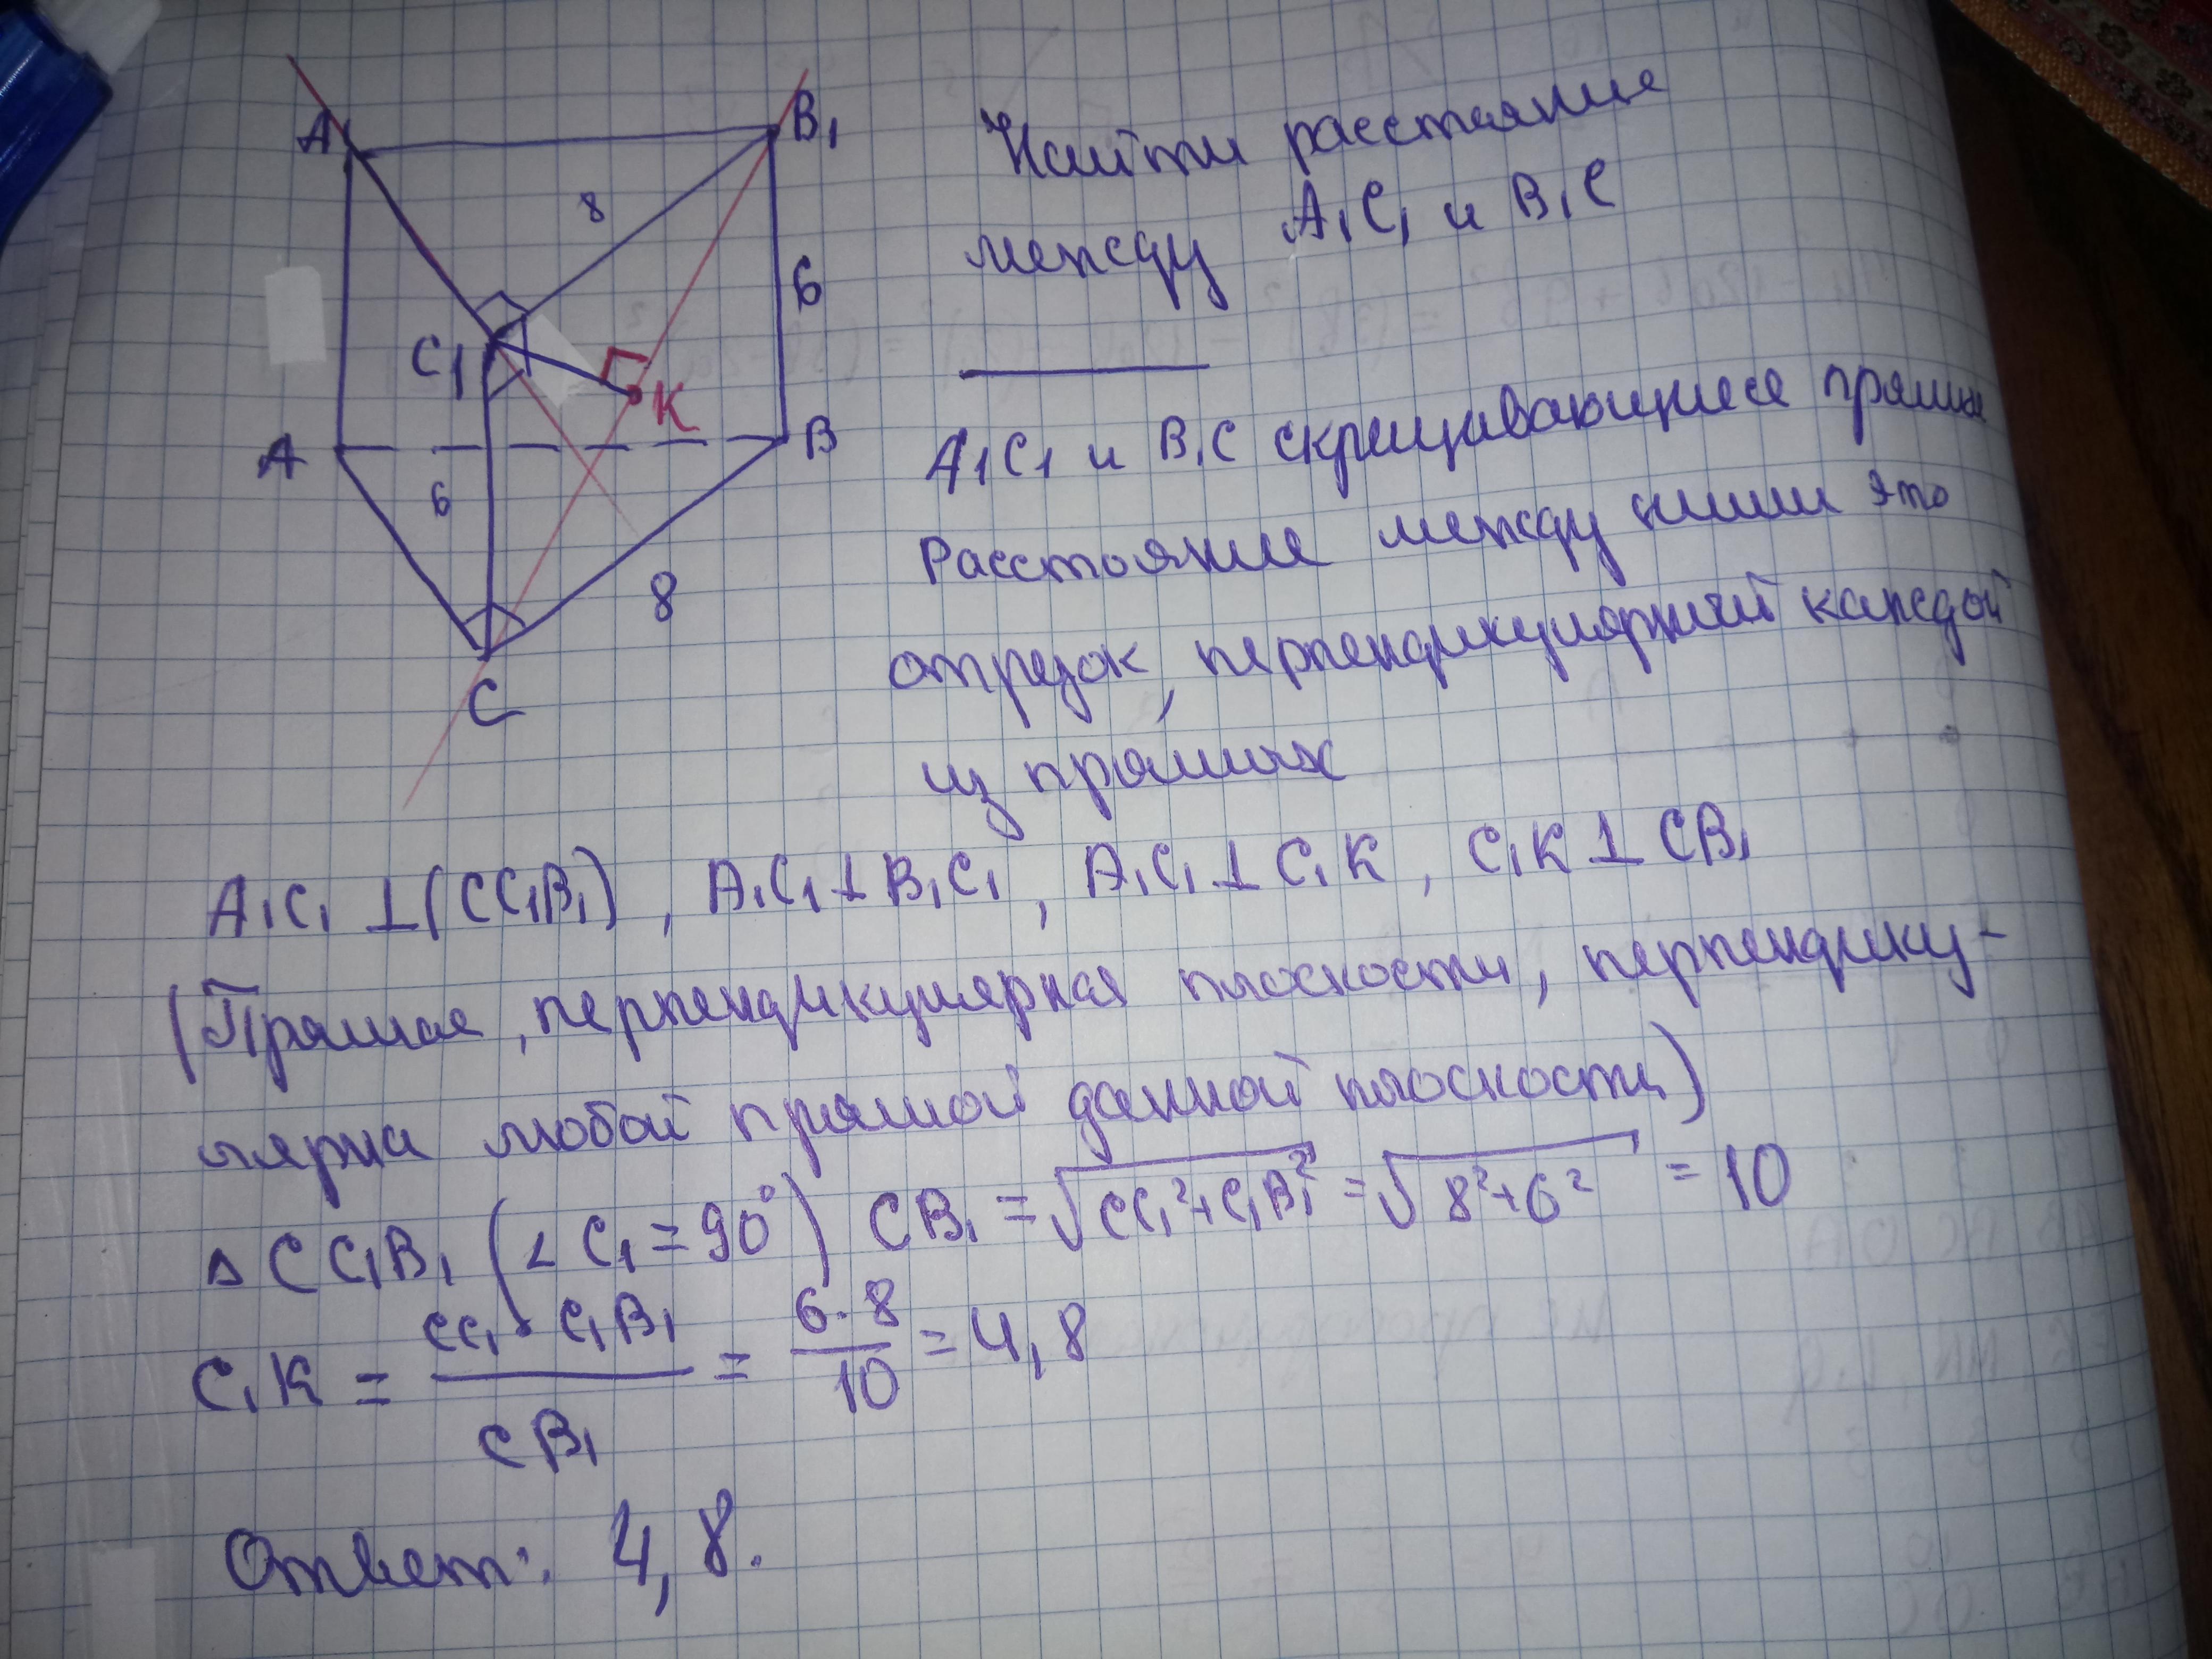 A₁
B₁
8
6
C₁
K
A
B
6
8
C
Найти расстояние
между A₁C₁ и B₁C
A₁C₁ и B₁C скрещивающиеся прямые
Расстояние между ними это
отрезок, перпендикулярный каждой
из прямых
A₁C₁ ⊥ (CC₁B₁), A₁C₁ ⊥ B₁C₁, A₁C₁ ⊥ C₁K, C₁K ⊥ CB₁
(Прямая, перпендикулярная плоскости, перпендику-
лярна любой прямой данной плоскости)
△CC₁B₁ (∠C₁ = 90°) CB₁ = √(CC₁² + C₁B₁²) = √(8² + 6²) = 10
C₁K = CC₁ · C₁B₁ / CB₁ = 6 · 8 / 10 = 4,8
Ответ: 4,8.